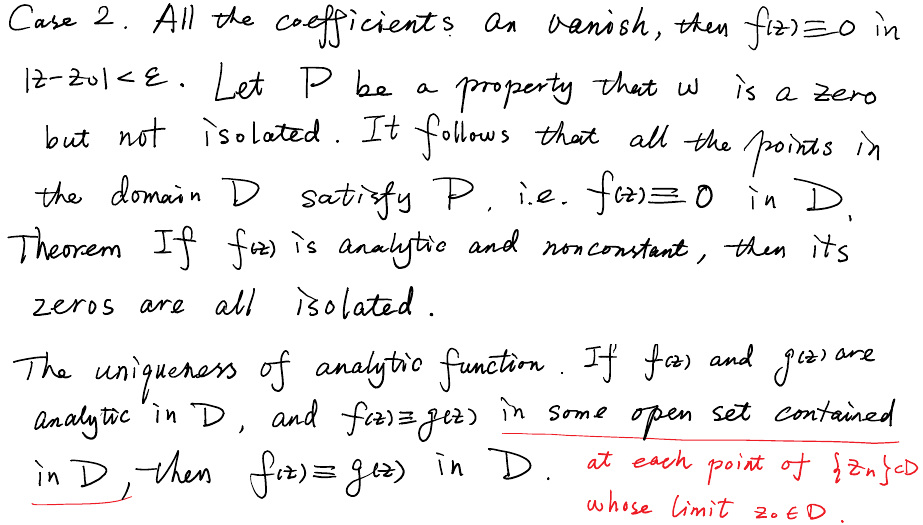 Case 2. All the coefficients an vanish, then f(z)≡0 in
|z-z0|<ε. Let P be a property that w is a zero
but not isolated. It follows that all the points in
the domain D satisfy P, i.e. f(z)≡0 in D.
Theorem If f(z) is analytic and nonconstant, then its
zeros are all isolated.
The uniqueness of analytic function. If f(z) and g(z) are
analytic in D, and f(z)≡g(z) in some open set contained
in D, then f(z)≡g(z) in D.
at each point of {zn}⊂D
whose limit z0∈D.